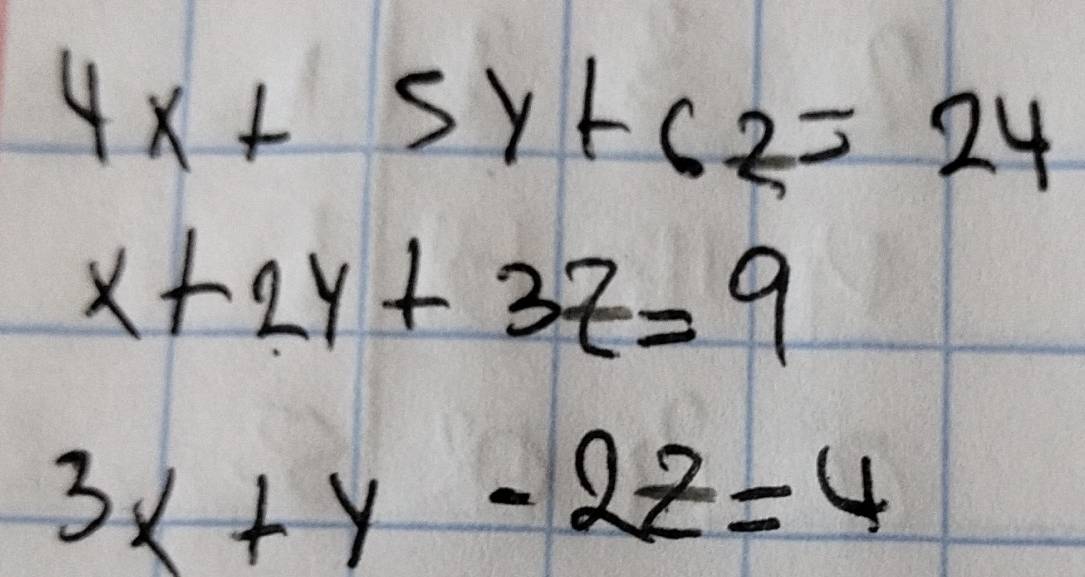 4x + 5y + 6z = 24
x + 2y + 3z = 9
3x + y - 2z = 4